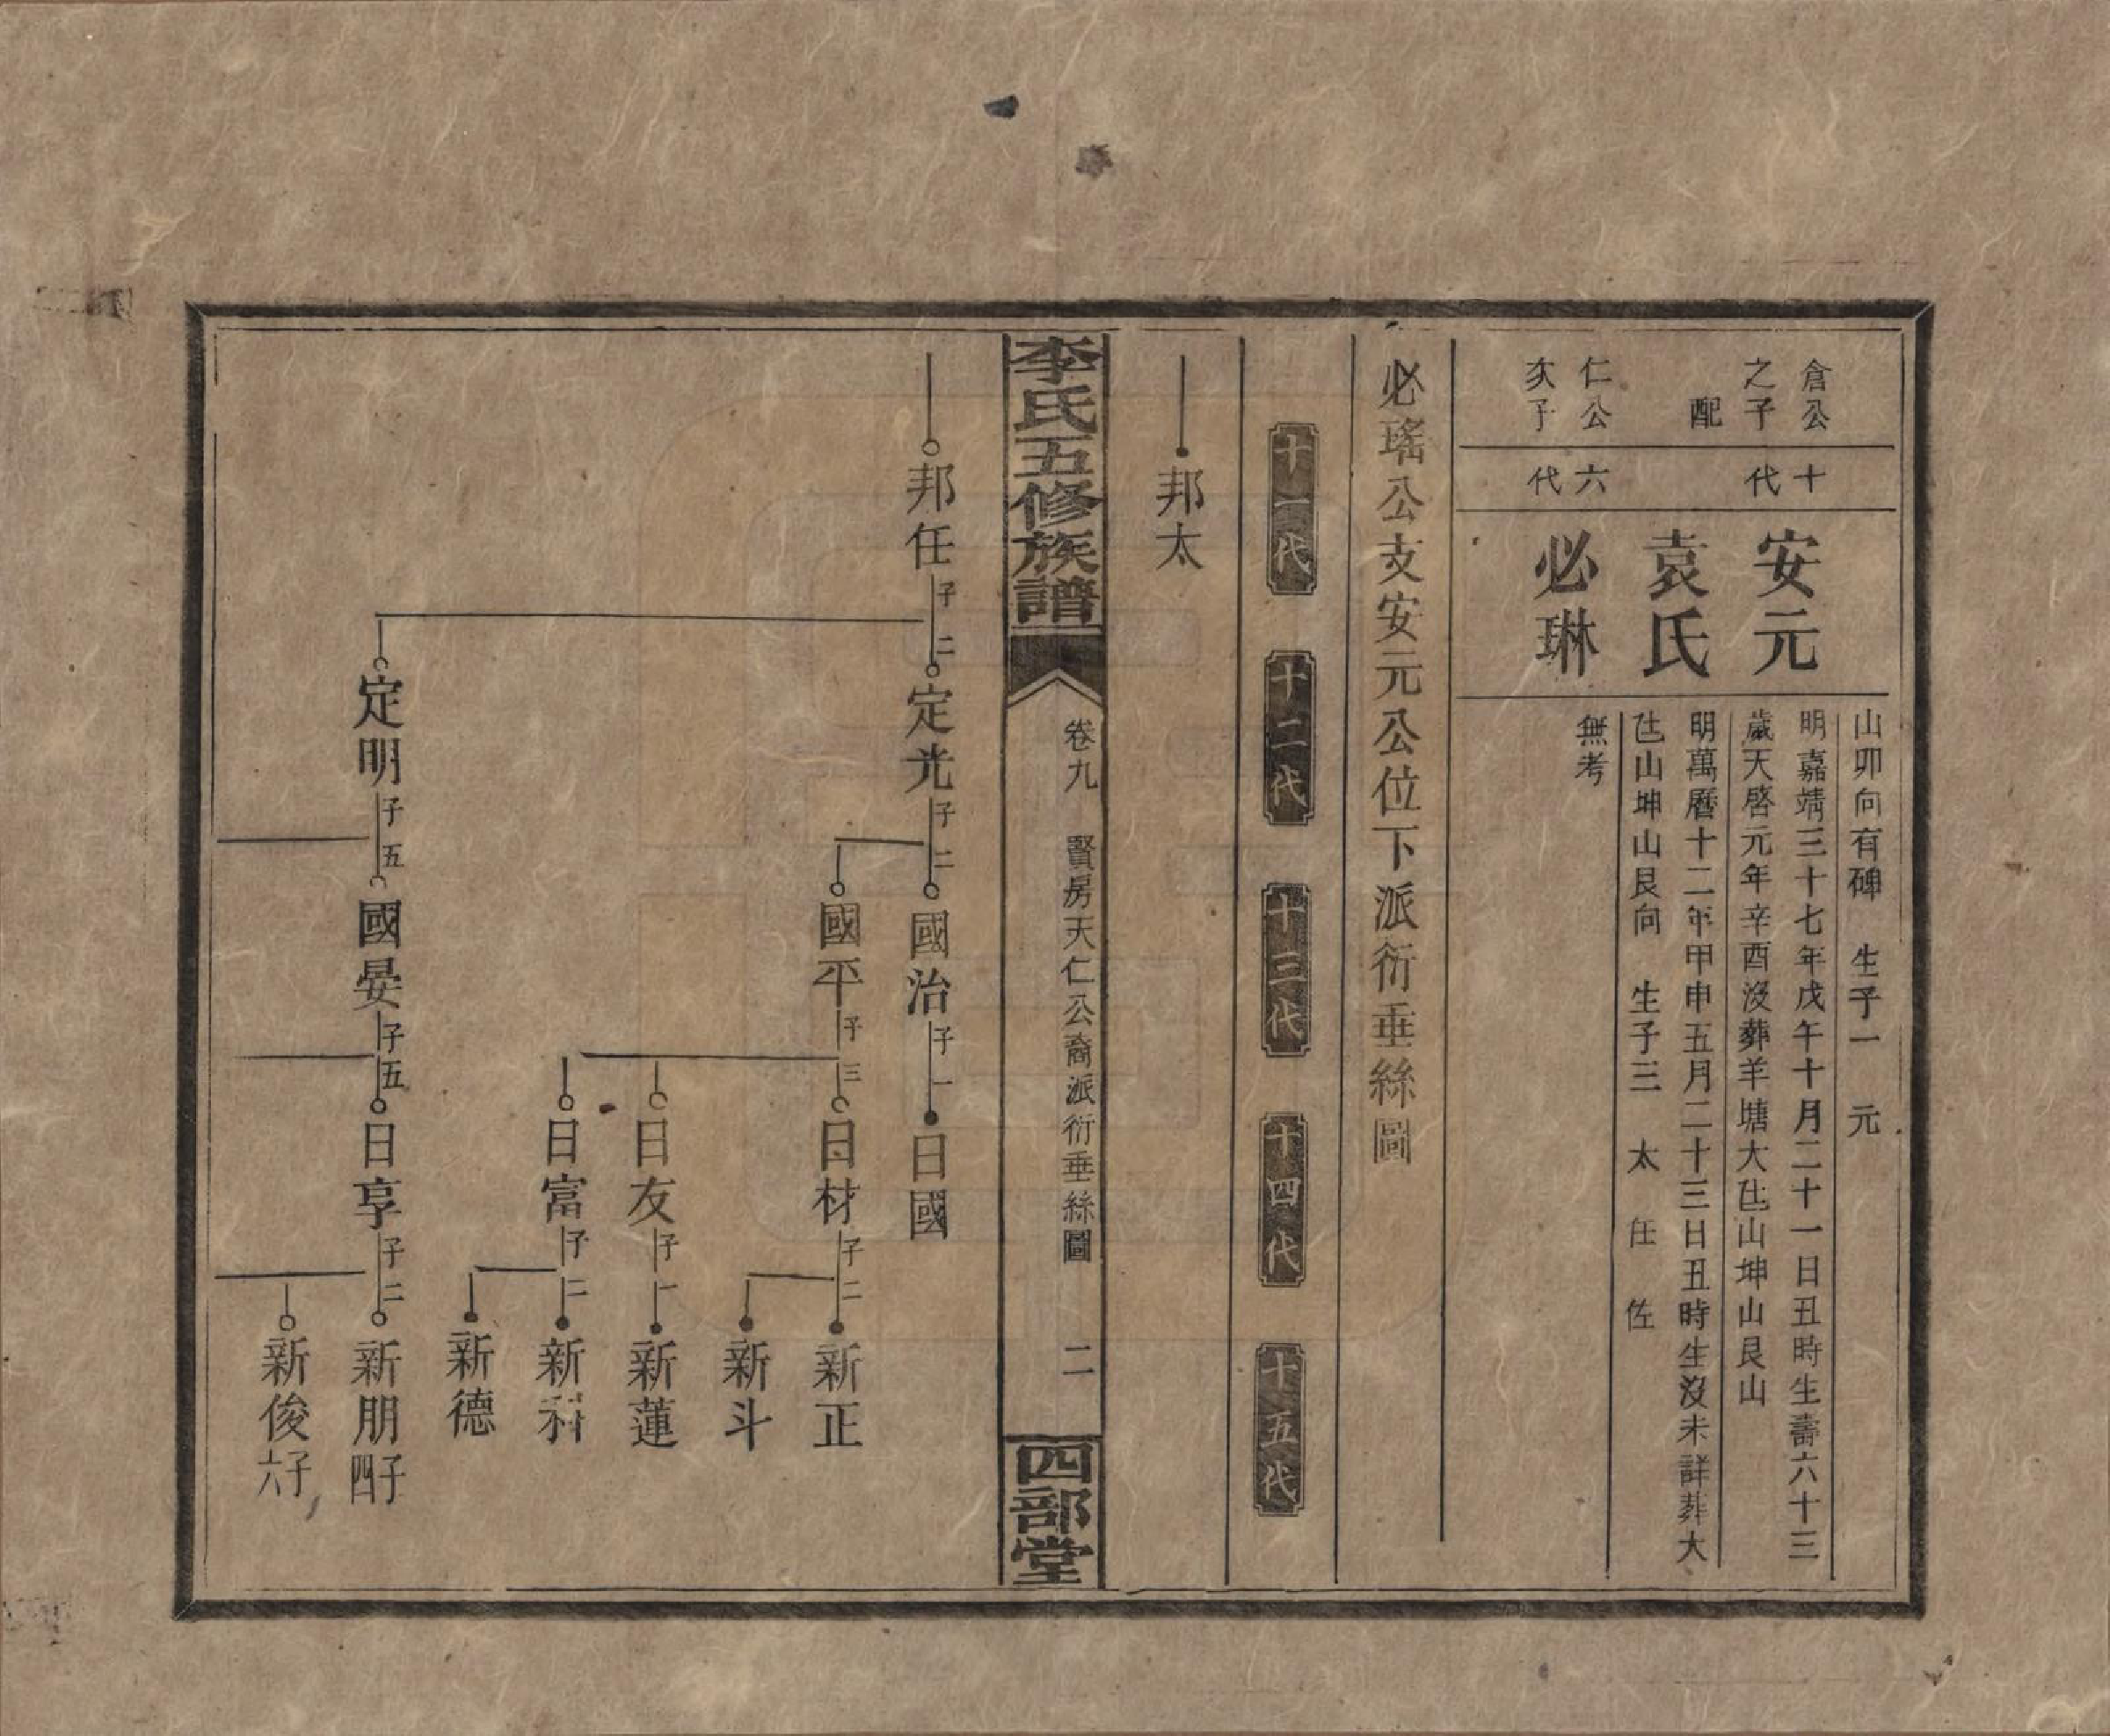 山卯向有碑　生子一　元
倉公之子
十代
安元
明嘉靖三十七年戊午十月二十一日丑時生壽六十三
歲天啓元年辛酉沒葬羊塘大㐌山坤山艮山
配
袁氏
明萬曆十二年甲申五月二十三日丑時生沒未詳葬大
㐌山坤山艮向　生子三　太　任　佐
仁公次子
六代
必琳
無考
必瑤公支安元公位下派衍垂絲圖
十一代　十二代　十三代　十四代　十五代
邦太
李氏五修族譜
卷九　賢房天仁公裔派衍垂絲圖　二
四部堂
邦任　子二　定光　子二　國治　子一　日國
國平　子三　日材　子二　新正
新斗
日友　子一　新蓮
日富　子二　新科
新德
定明　子五　國晏　子五　日享　子二　新朋　四子
新俊　六子